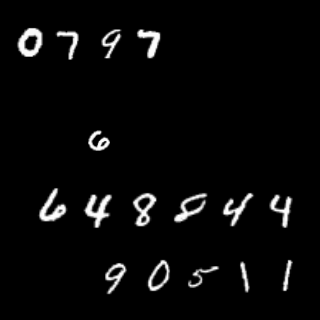 0797
6
648844
90511